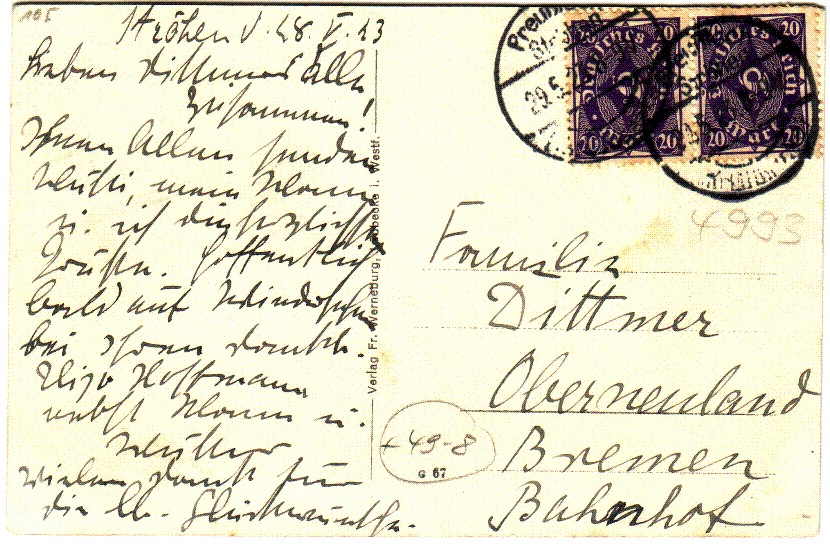 105
Ströhen d. 28. V. 23
Lieben Dittmers alle
zusammen!
Ihnen Allen senden
Mutti, mein Mann
u. ich die herzlichsten
Grüße. Hoffentlich
bald auf Wiedersehen
bei Ihnen
Hoffmann
nebst Mann u.
Mutter
Vielen Dank für
die lb. Glückwünsche.
Verlag Fr. Werneburg, Lübbecke i. Westf.
20 20
Deutsches Reich
Mark
20 20
20 20
Deutsches Reich
Mark
20 20
29.5.
4993
Familie
Dittmer
Oberneuland
Bremen
Bahnhof
49-8
G 67